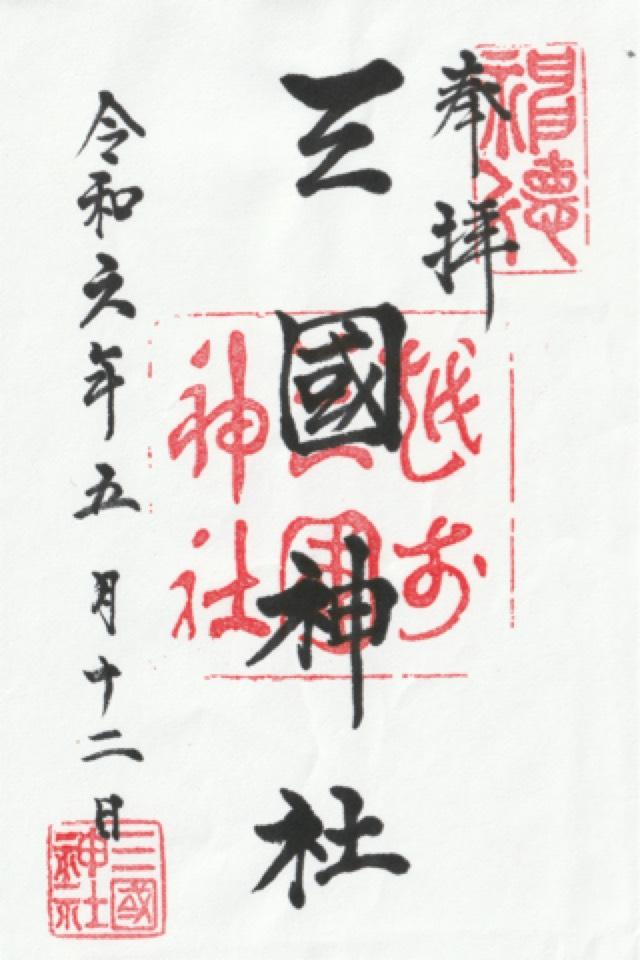 奉拝
三國神社
令和六年五月十二日
越前
三国
神社
三國
神社